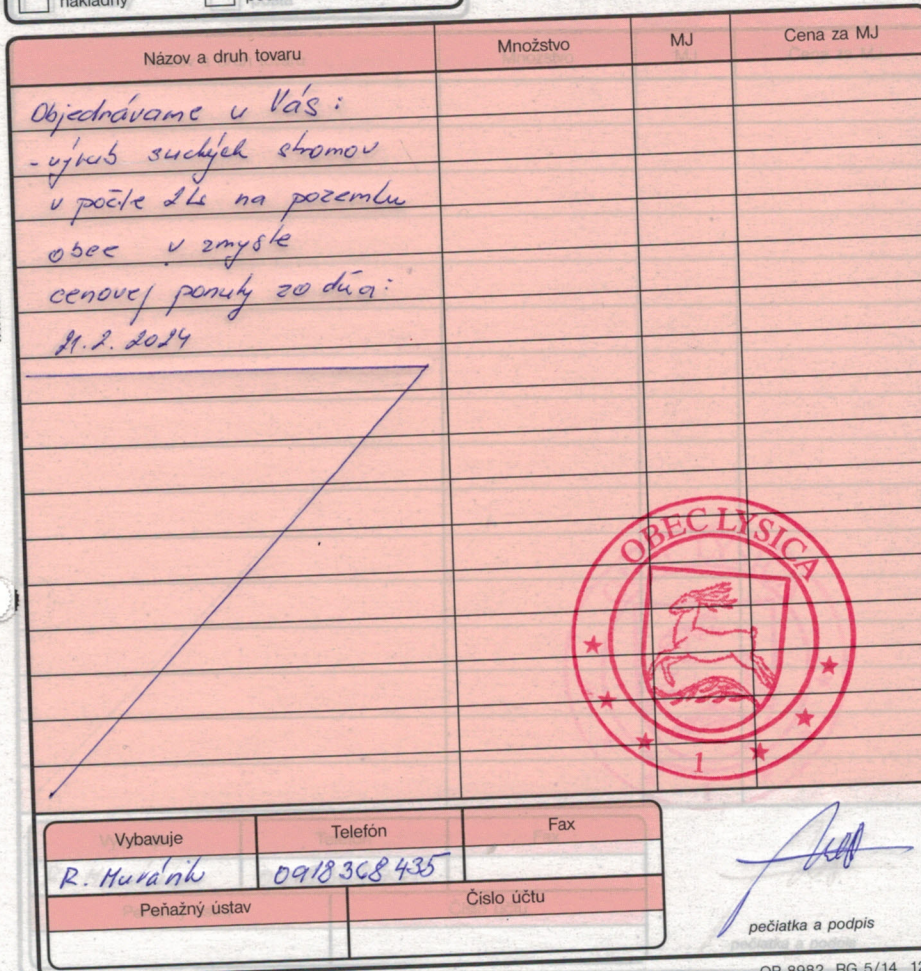 nákladný
Názov a druh tovaru Množstvo MJ Cena za MJ
Objednávame u Vás:
- výrub suchých stromov
v počte 2ks na pozemku
obce v zmysle
cenovej ponuky zo dňa:
21.2.2024
OBEC LYSICA
1
Vybavuje Telefón Fax
R. Murárik 0918368435
Peňažný ústav Číslo účtu
pečiatka a podpis
OP 8982 RG 5/14